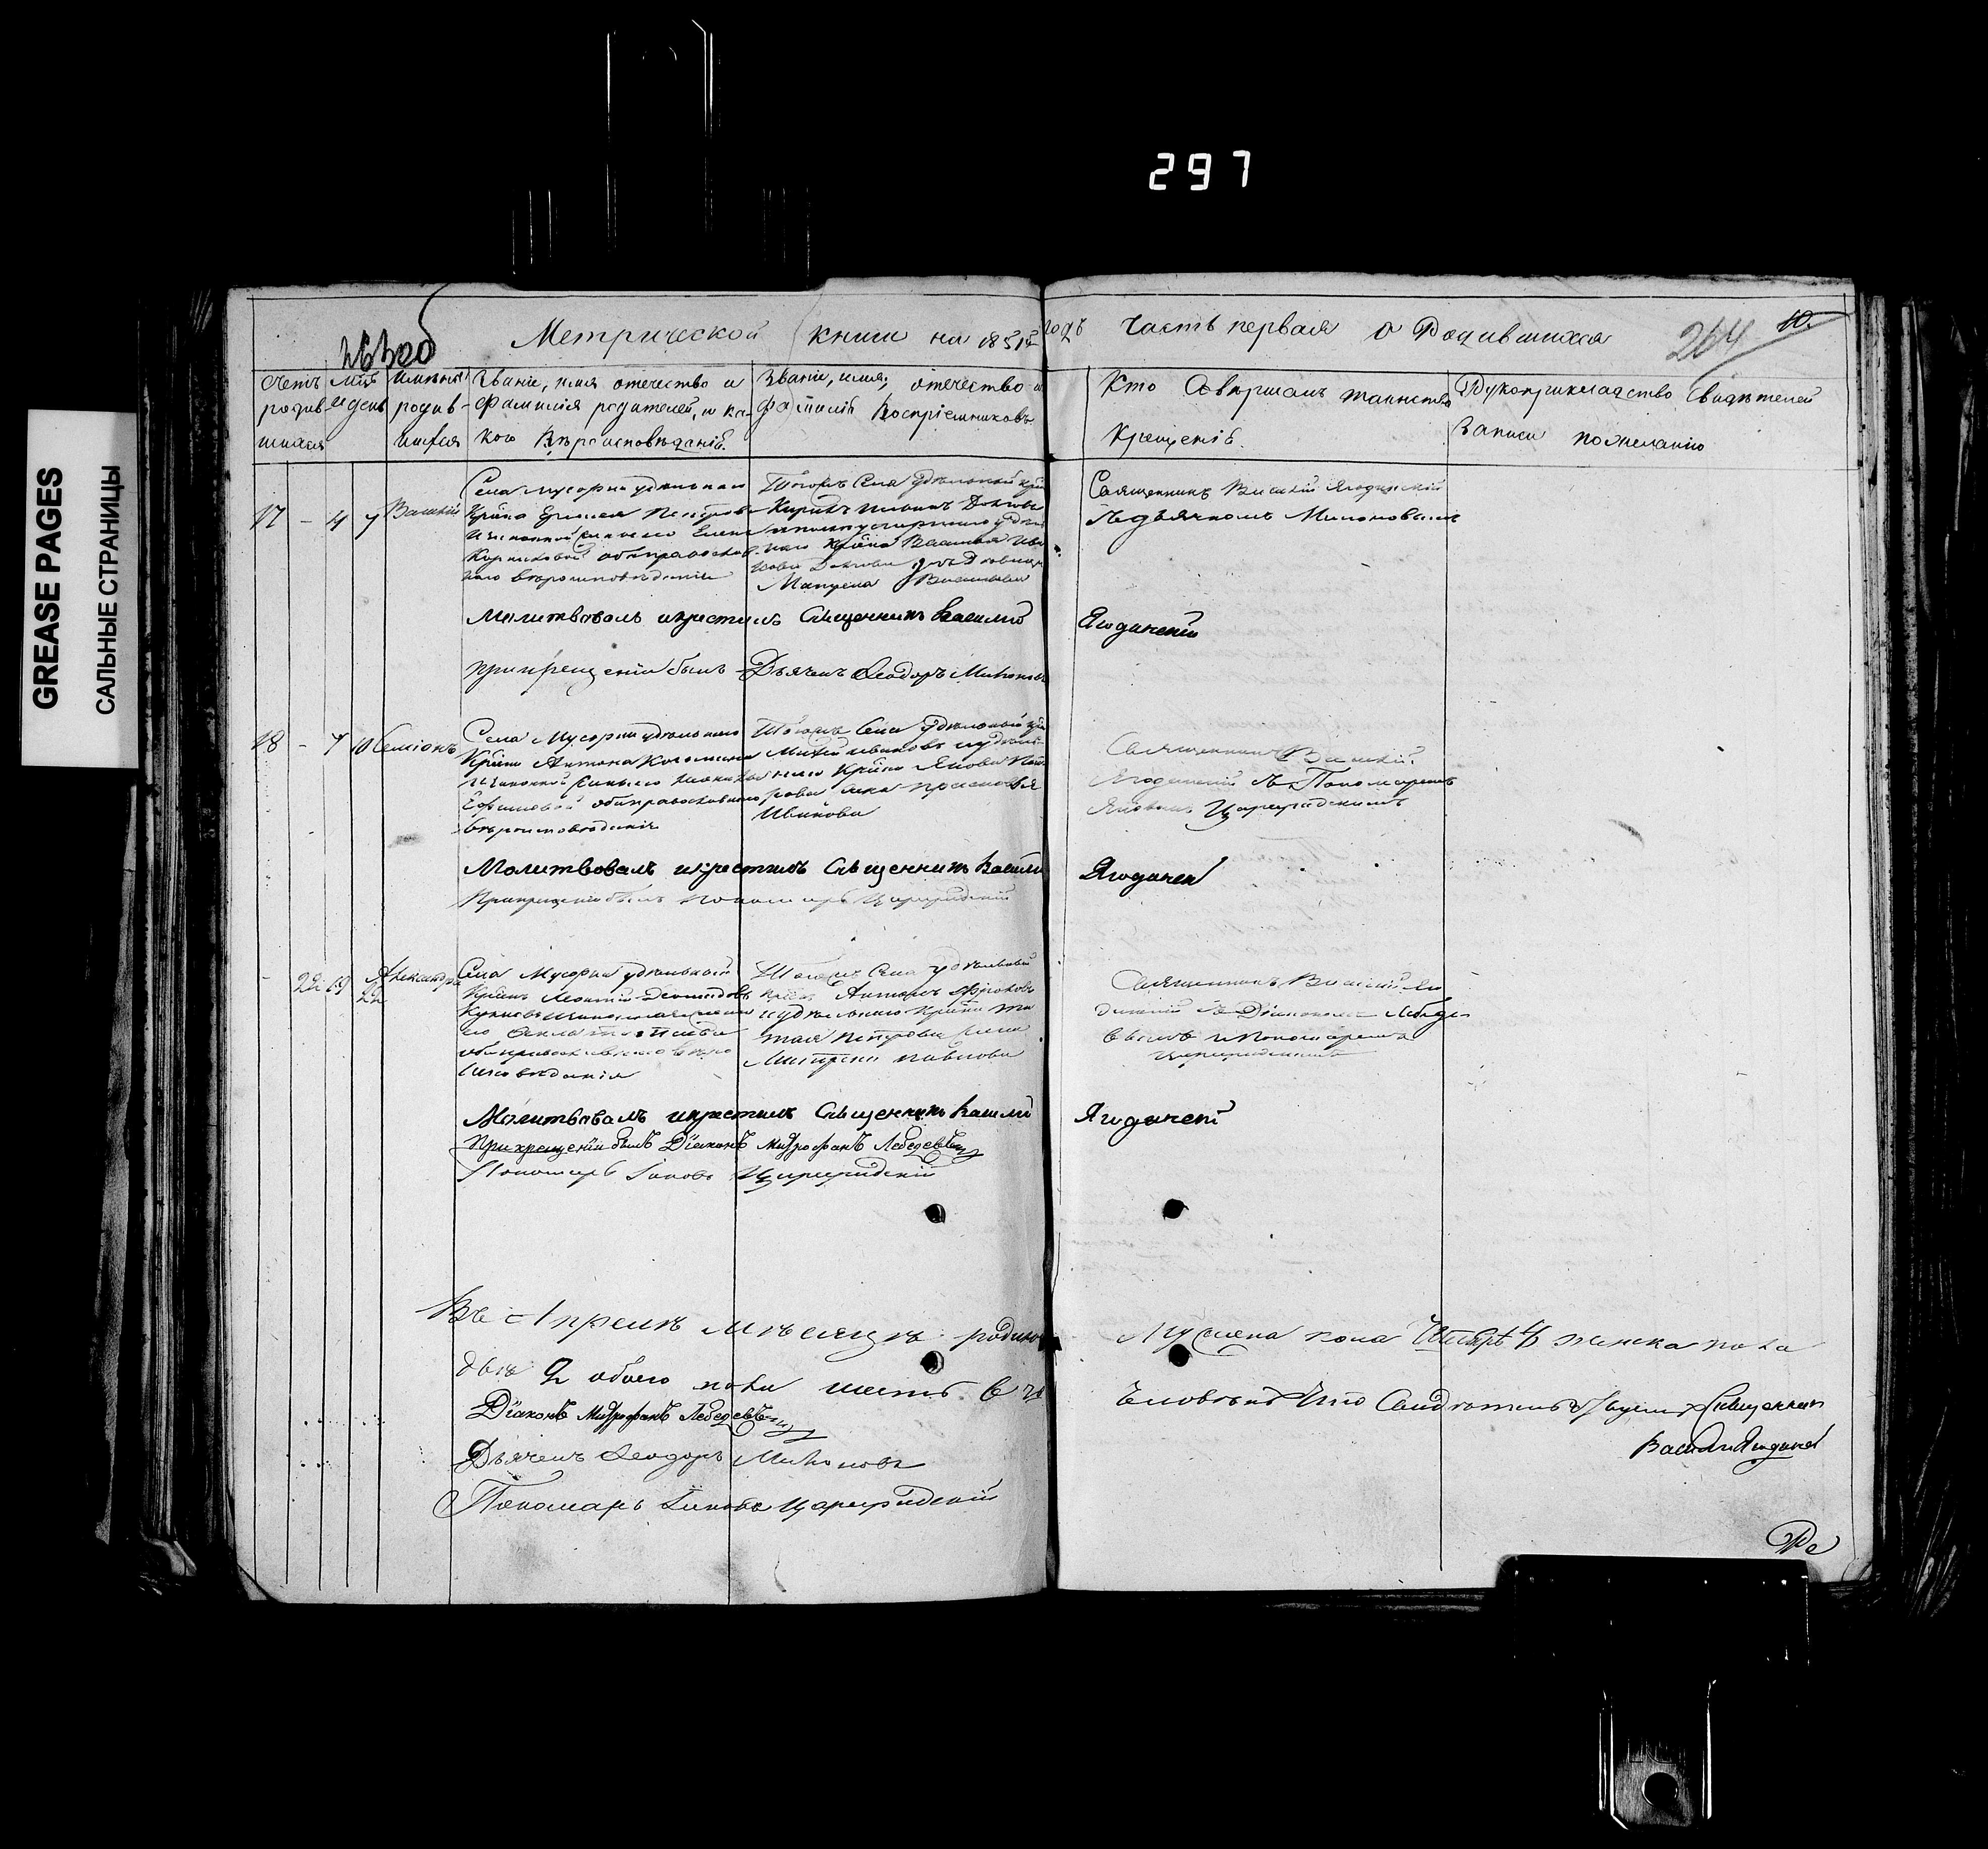 297
GREASE PAGES
САЛЬНЫЕ СТРАНИЦЫ
Метрической книги на 1851й годъ часть первая о Родившихся
264
10.
счетъ родив шихся
мця и день
имена родив- шихся
Званіе, имя отечество и фамилія родителей, и ка- кого Вѣроисповѣданія.
Званіе, имя, отечество и фамилія Воспріемниковъ
Кто Совершалъ таинство Крещенія.
Рукоприкладство Свидѣтелей Записи по желанію
17 - 4 7
Василій
Села Мусорки удѣльнаго
Крѣна Ермолая Петрова
и законной жены его Елены
обѣ православ-
наго вѣроисповѣданія
Тогожъ Села Удѣльный
Кириллъ Ильинъ Долговъ
Крѣна Василья Ива
нова Долгова
Васильева
Священникъ Василій Ягодинскій
съ дьячкомъ Милоновымъ
Молитвовалъ и крестилъ Священникъ Василій Ягодинскій
При крещеніи былъ Дьячекъ Ѳеодоръ Милоновъ
18 - 7 10
Семіонъ
Села Мусорки удѣльнаго
Крѣна Антона
и законной жены его
Ефимовой оба православнаго
вѣроисповѣданія
Тогожъ Села Удѣльный
Ивановъ и удѣль-
наго Крѣна Якова Пет
рова жена Прасковья
Иванова
Священникъ Василій
Ягодинскій съ Пономаремъ
Яковомъ Цареградскимъ
Молитвовалъ и крестилъ Священникъ Василій Ягодинскій
При крещеніи былъ пономарь Цареградскій
- 22 19 22
Александра
Села Мусорки удѣльный
Крѣнъ Леонтій Демидовъ
оба православнаго вѣро
исповѣданія
Тогожъ Села удѣльный
крѣнъ Антонъ Фроловъ
и удѣльнаго Крѣна
Петрова жена
Павлова
Священникъ Василій Яго
динскій съ Діакономъ Лебеде
вымъ и Пономаремъ
Цареградскимъ
Молитвовалъ и крестилъ Священникъ Василій Ягодинскій
При крещеніи былъ Діаконъ Митрофанъ Лебедевъ и
Пономарь Іаковъ Цареградскій
Въ Апрелѣ мѣсяцѣ родилось Мужеска пола Четыре 4 женска пола
двѣ 2 обоего пола шесть 6 человѣкъ Что Свидѣтельствуемъ Священникъ
Василій Ягодинскій
Діаконъ Митрофанъ Лебедевъ
Дьячекъ Ѳеодоръ Милоновъ
Пономарь Іаковъ Цареградскій
Ре